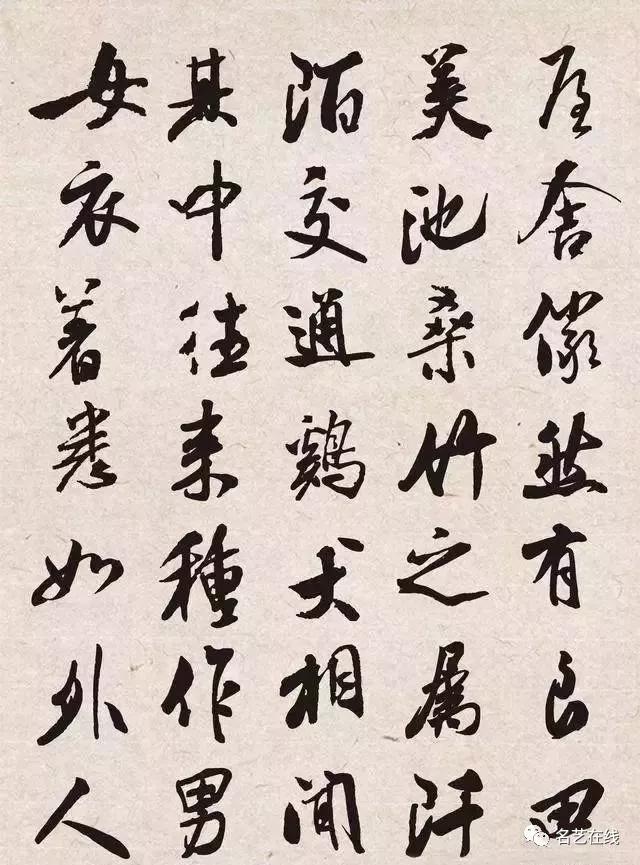 屋舍儼然有良田
美池桑竹之屬阡
陌交通鷄犬相聞
其中往来種作男
女衣着悉如外人
名艺在线